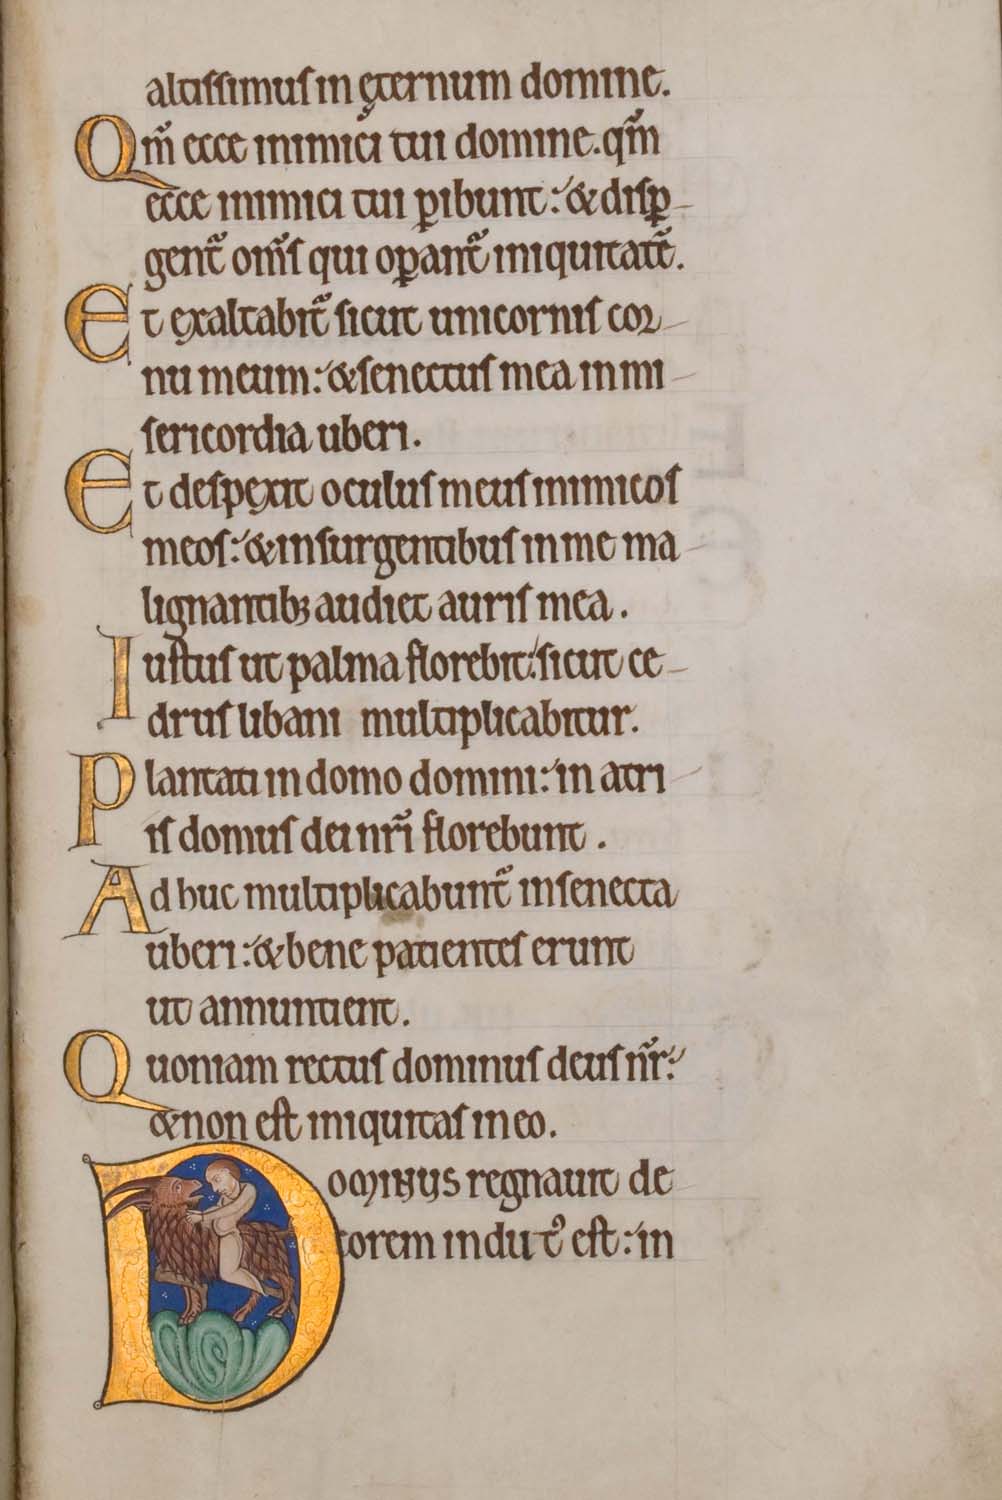 altissimus in ęternum domine.
Qm̃ ecce inimici tui domine. qm̃
ecce inimici tui ꝑibunt: & disꝑ-
gent᷑ om̃s qui oꝑant᷑ iniquitatē.
Et exaltabit᷑ sicut unicornis cor-
nu meum: & senectus mea in mi-
sericordia uberi.
Et despexit oculus meus inimicos
meos: & insurgentibus in me ma-
lignantibꝫ audiet auris mea.
Iustus ut palma florebit: sicut ce-
drus libani multiplicabitur.
Plantati in domo domini: in atri-
is domus dei nr̃i florebunt.
Adhuc multiplicabunt᷑ in senecta
uberi: & bene patientes erunt
ut annuntient.
Quoniam rectus dominus deus nr̃:
& non est iniquitas in eo.
Dominus regnauit de
corem indutꝰ est: in